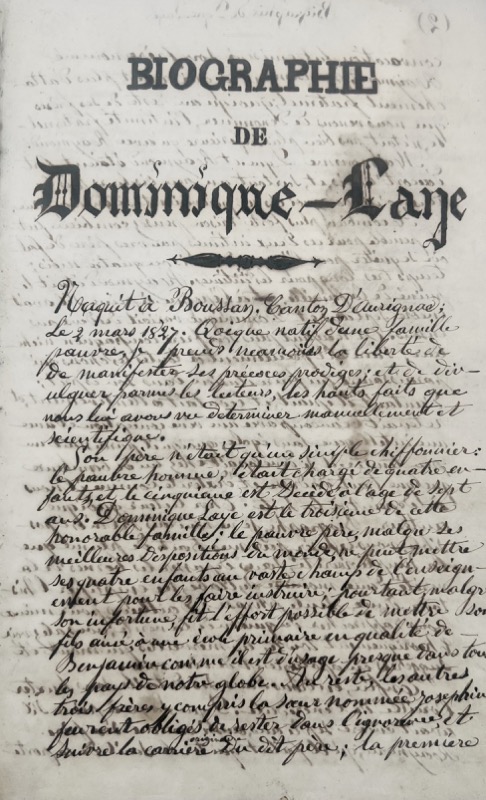 (2)
BIOGRAPHIE
DE
Dominique-Laye
Naquit à Boussan, Canton D'aurignac;
Le 2 mars 1827. Quoique natif d'une famille
pauvre, je prends néanmoins la liberté de
de manifester ses précoces prodiges; et de div-
ulguer parmis les lecteurs, les hauts faits que
nous lui avons vu déterminer manuellement et
scientifique.
Son père n'était qu'un simple chiffonnier:
le pauvre homme, était chargé de quatre en-
fants, et le cinquième est décédé à l'age de sept
ans. Dominique Laye est le troisième de cette
honorable famille: le pauvre père, malgré ses
meilleures dispositions du monde, ne peut mettre
ses quatre enfants au vaste champs de l'enseign-
ement pour les faire instruire; pourtant, malgré
son infortune, fit l'effort possible de mettre son
fils ainé, à une école primaire en qualité de
Benjamin comme il est d'usage presque dans tous
les pays de notre globe. Du reste, les autres
trois frères y compris la sœur nommée Josephine
furent obligés de rester dans l'ignorance et
suivre la carrière originaire du dit père; la première